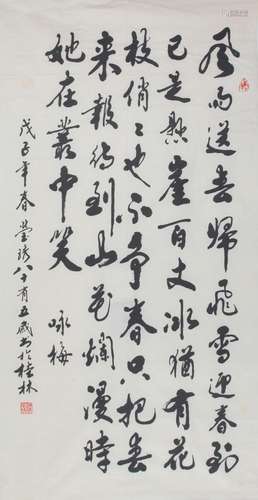 风雨送春歸飛雪迎春到
已是懸崖百丈冰猶有花
枝俏俏也不争春只把春
来報待到山花爛漫時
她在叢中笑 咏梅
戊子年春瑩琇八十有五歲书於桂林